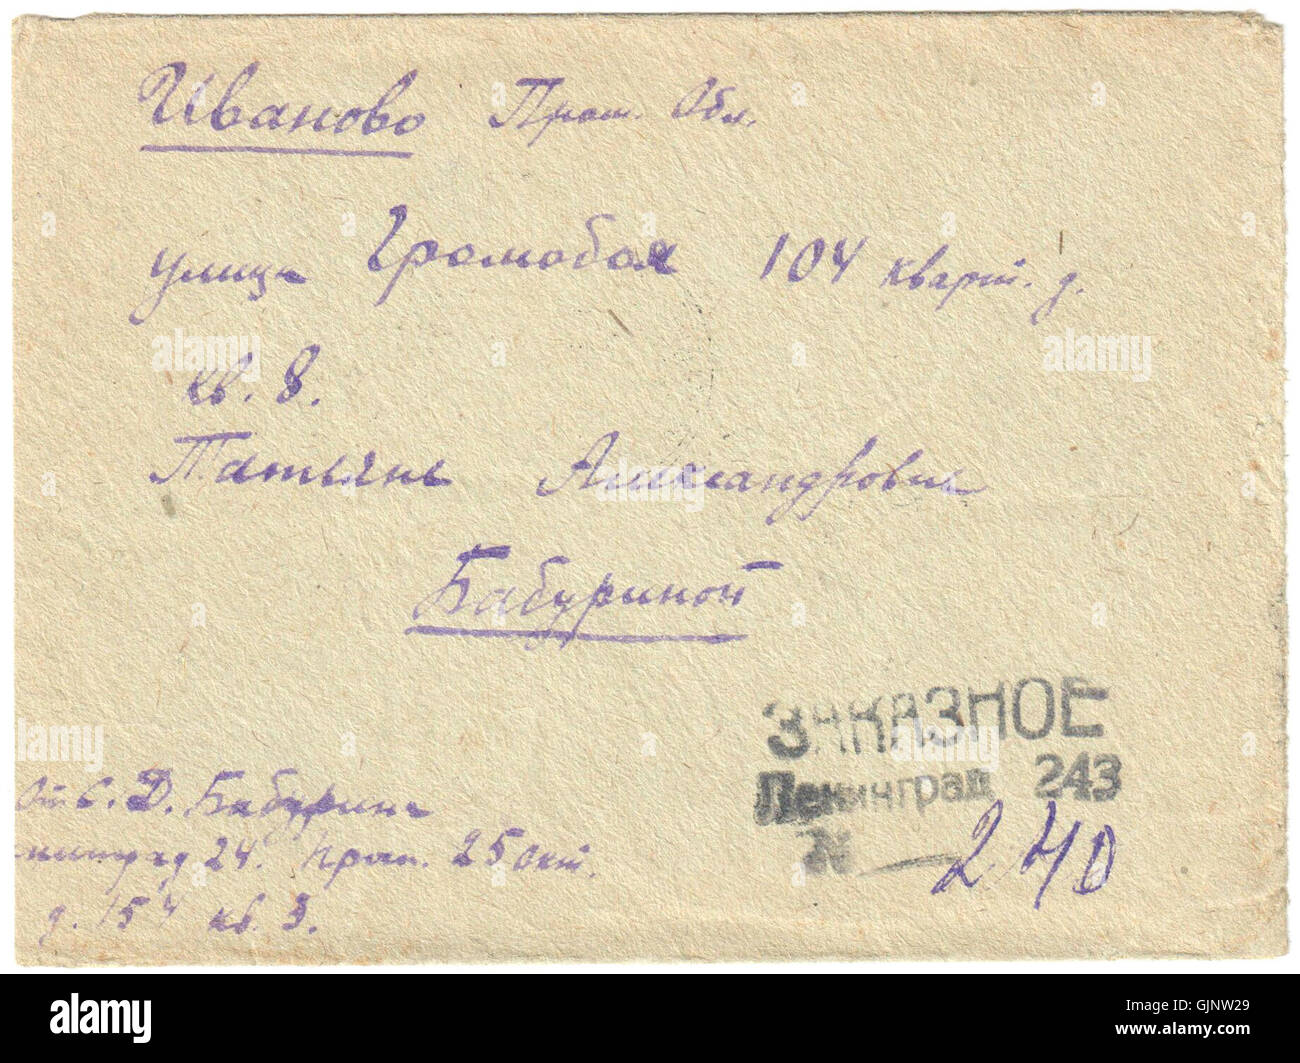 Иваново Пром. Обл.
улица Громобоя 104 кварт. д.
кв. 8.
Татьяне Александровне
Бабуриной
ЗАКАЗНОЕ
Ленинград 243
N 240
От С. Д. Бабурина
нинград 24. Просп. 25 окт.
д. 154 кв. 3.
alamy
Image ID: GJNW29
www.alamy.com